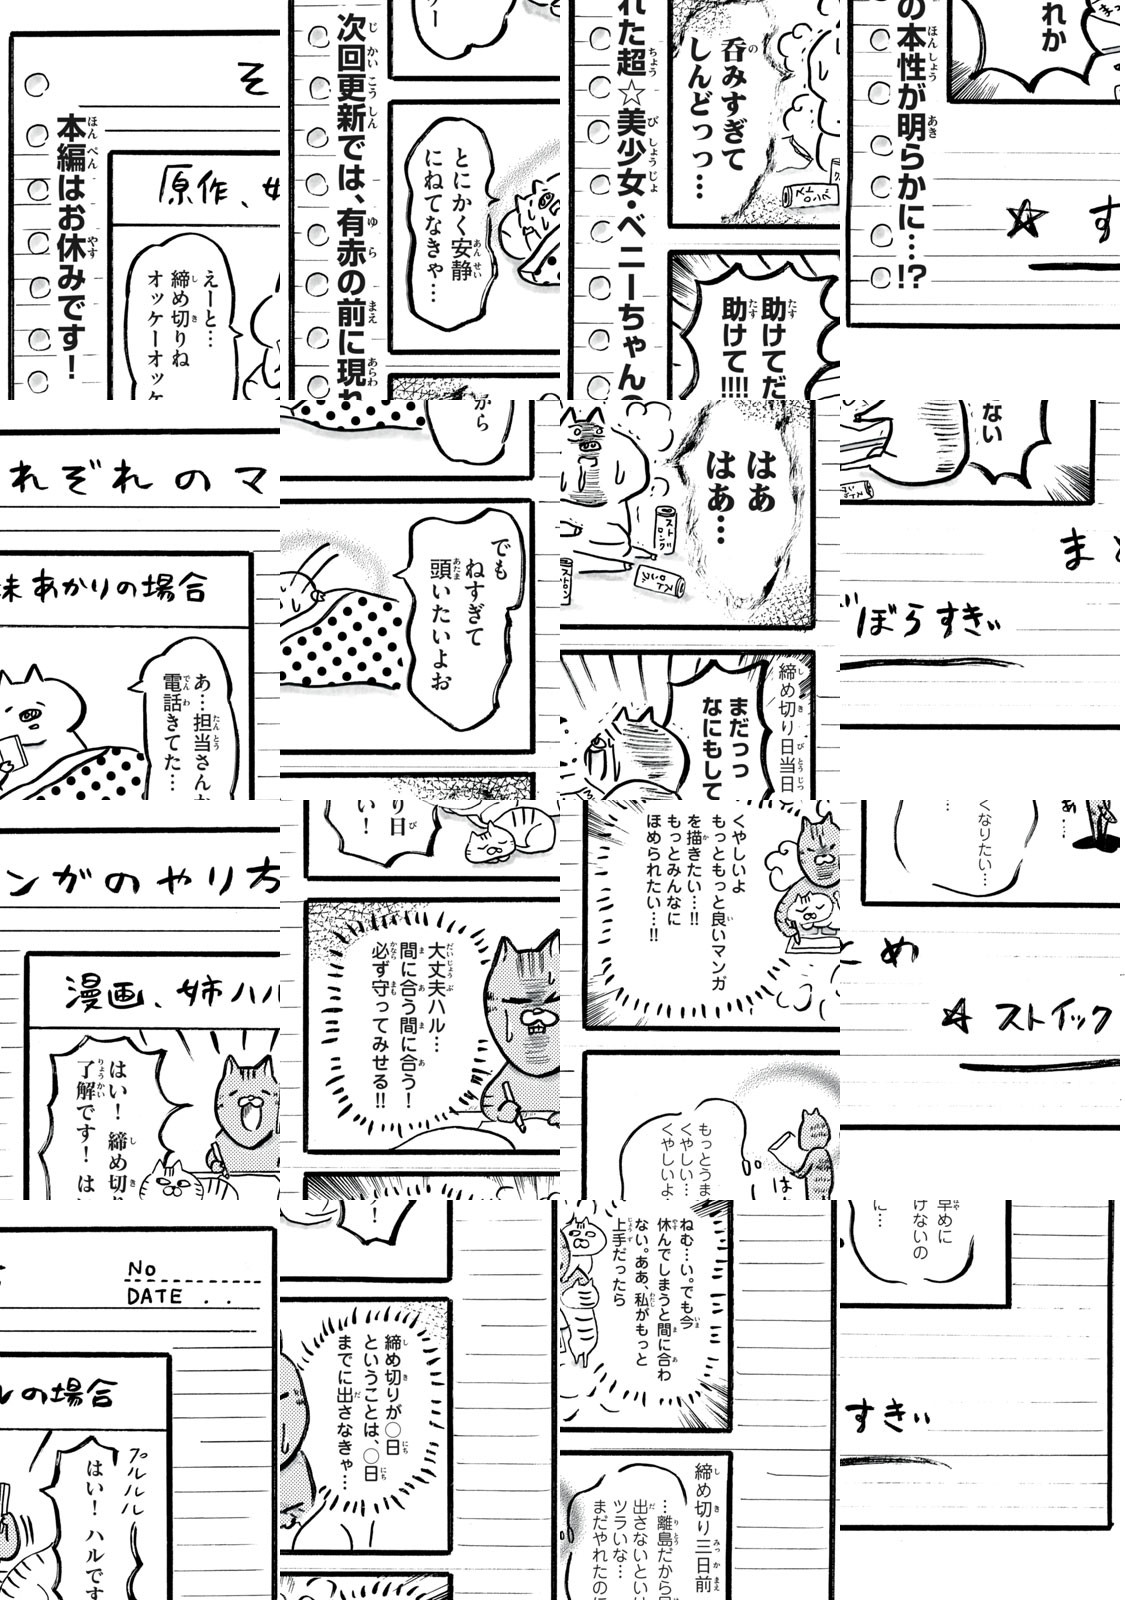 そ
原作、
本編はお休みです！
えーと…
締め切りね
オッケーオッケ
ッケー
次回更新では、有赤の前に現れ
とにかく安静
にねてなきゃ…
れた超☆美少女・ベニーちゃんの
呑みすぎて
しんどっっ…
ストロング
助けてだ
助けて!!!!
の本性が明らかに…!?
れか
☆ す
れぞれのマ
妹あかりの場合
あ…担当さんか
電話きてた…
から
でも
ねすぎて
頭いたいよお
はあ
はあ…
ストロング
ストロング
ストロン
締め切り日当日
まだっっ
なにもして
ない
ま
ぼらすぎぃ
ンガのやり方
漫画、姉ハル
はい！締め切り
了解です！は
り日
い！
大丈夫ハル…
間に合う間に合う！
必ず守ってみせる!!
くやしいよ
もっともっと良いマンガ
を描きたい…!!
もっとみんなに
ほめられたい…!!
もっとうま
くやしい…
くやしいよ
は
くなりたい…
…
あ…
め
☆ ストイック
No
DATE . .
ルの場合
プルルルル
はい！ハルです
！
締め切りが〇日
ということは、〇日
までに出さなきゃ…
ねむ…い。でも今
休んでしまうと間に合わ
ない。ああ、私がもっと
上手だったら
締め切り三日前
…離島だから早
出さないといけ
ツラいな…
まだやれたのに
早めに
けないの
に…
すぎぃ